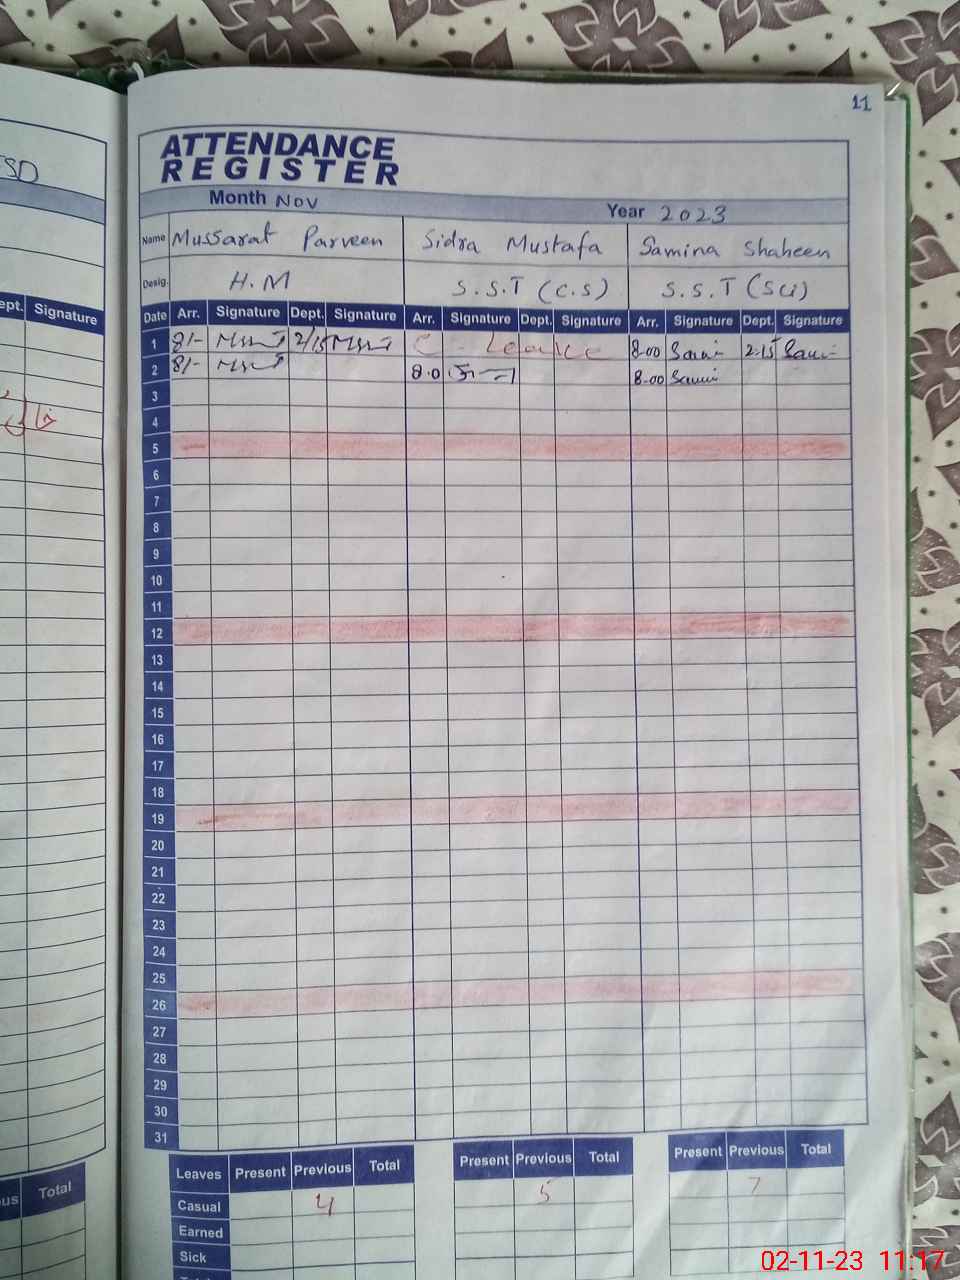 11
ATTENDANCE
REGISTER
Month Nov
Year 2023
Name Mussarat Parveen Sidra Mustafa Samina Shaheen
Desig. H.M S.S.T (C.S) S.S.T (Sci)
Date Arr. Signature Dept. Signature Arr. Signature Dept. Signature Arr. Signature Dept. Signature
1 8/- 2/15 C - Leave 8.00 2.15
2 8/- 8.0 8.00
3
4
5
6
7
8
9
10
11
12
13
14
15
16
17
18
19
20
21
22
23
24
25
26
27
28
29
30
31
Leaves Present Previous Total Present Previous Total Present Previous Total
Casual 4 5 7
Earned
Sick
ept. Signature
us Total
02-11-23 11:17